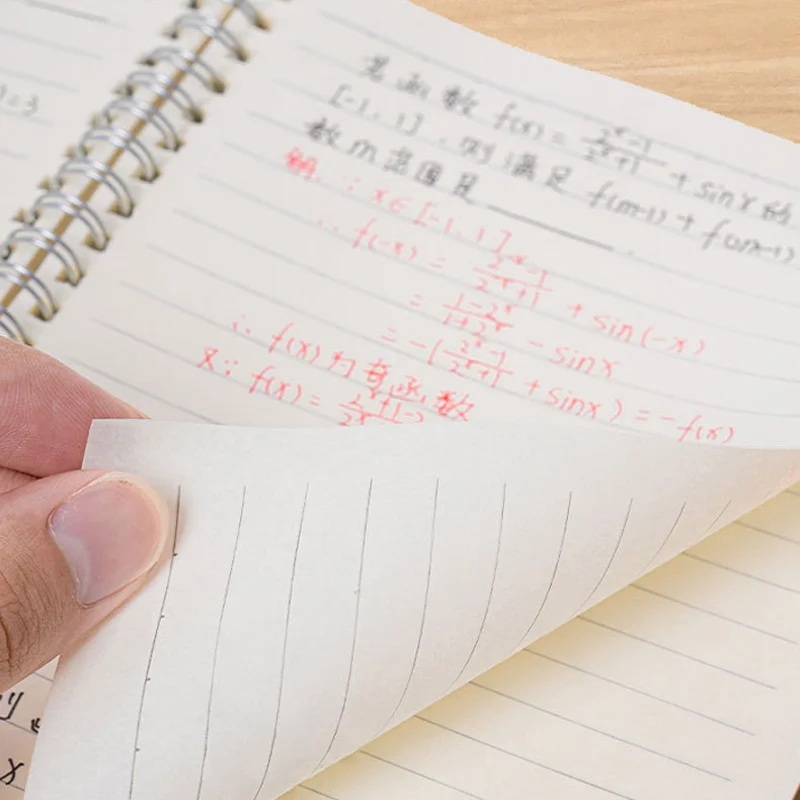 )=3
若函数 f(x) = (2^x-1)/(2^x+1) + sinx 的
[-1,1], 则满足 f(m-1)+f(2m-1)
数m范围是________.
解: ∵ x∈[-1,1]
∴ f(-x) = (2^-x-1)/(2^-x+1) + sin(-x)
= (1-2^x)/(1+2^x) - sinx
= -((2^x-1)/(2^x+1) + sinx) = -f(x)
∴ f(x)为奇函数
又∵ f(x) = (2^x+1-2)/2^x
则
x